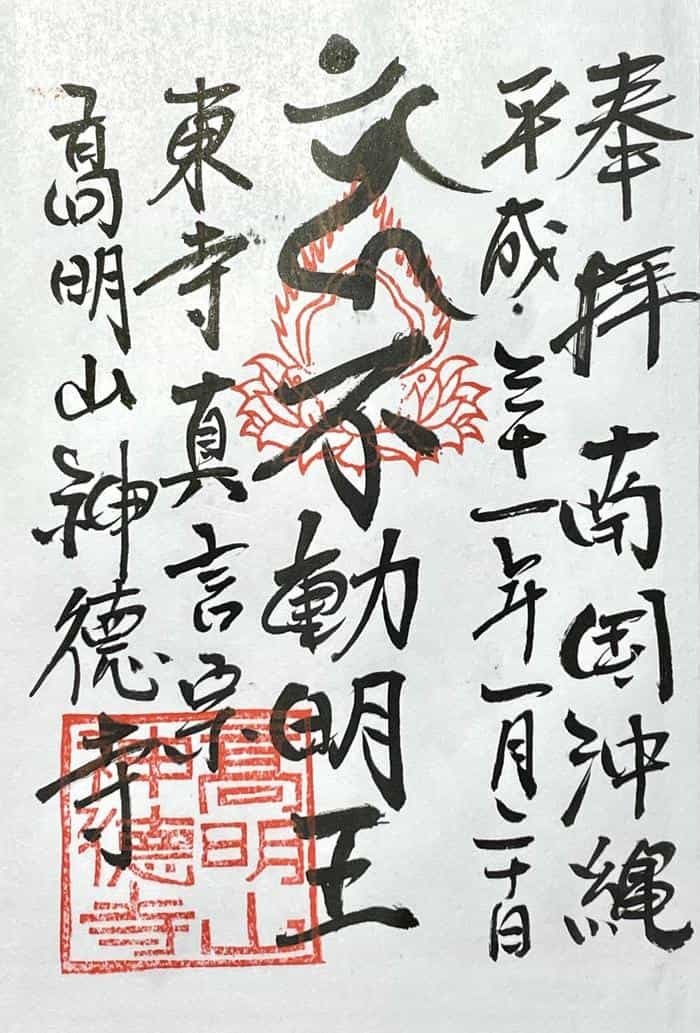 奉拝 南国沖縄
平成・三十一年一月二十日
不動明王
東寺真言宗
髙明山神徳寺
髙明山
神徳寺